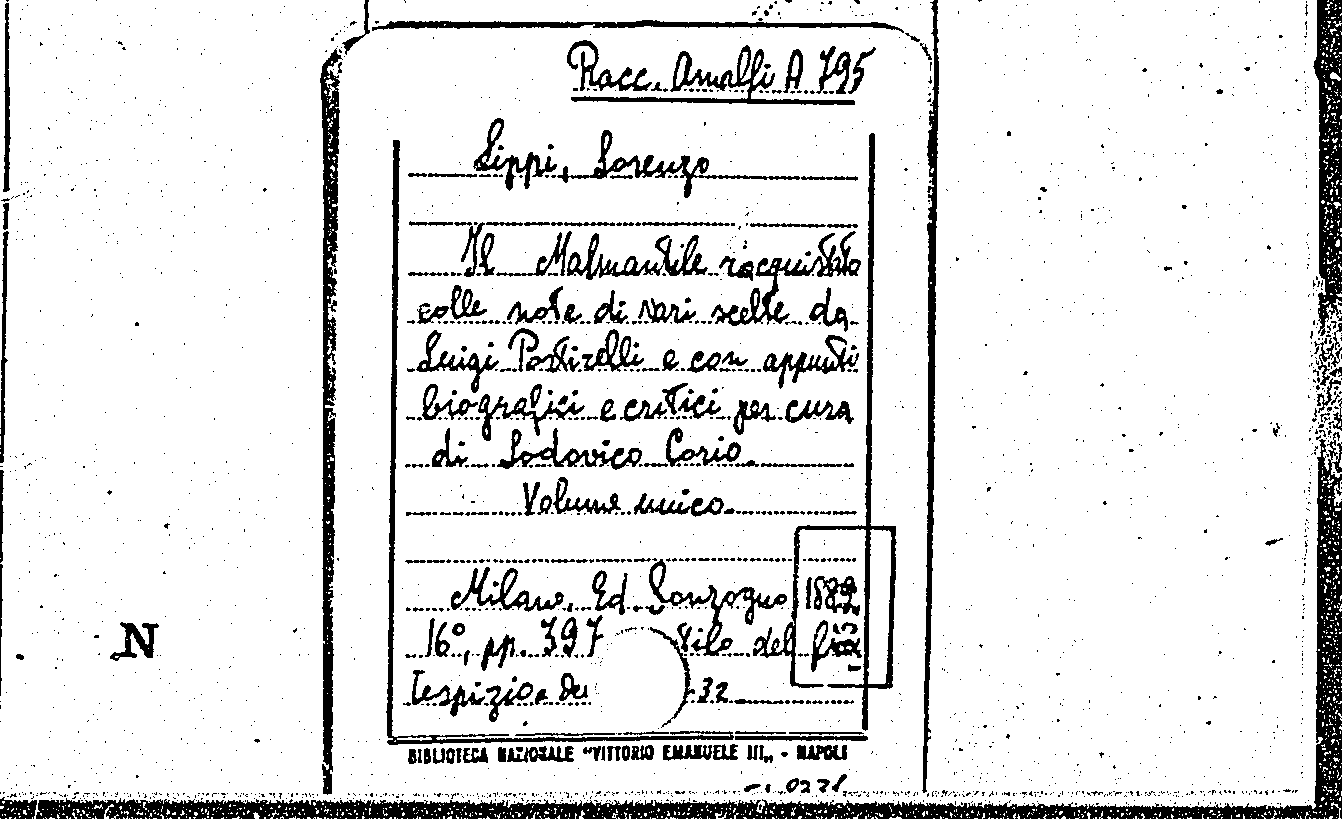 Racc. Amalfi A 795
Lippi, Lorenzo
Il Malmantile racquistato
colle note di vari scelte da
Luigi Portirelli e con appunti
biografici e critici per cura
di Lodovico Corio.
Volume unico.
Milano, Ed. Sonzogno, 1889
16°, pp. 397 del
32
N
BIBLIOTECA NAZIONALE "VITTORIO EMANUELE III" - NAPOLI